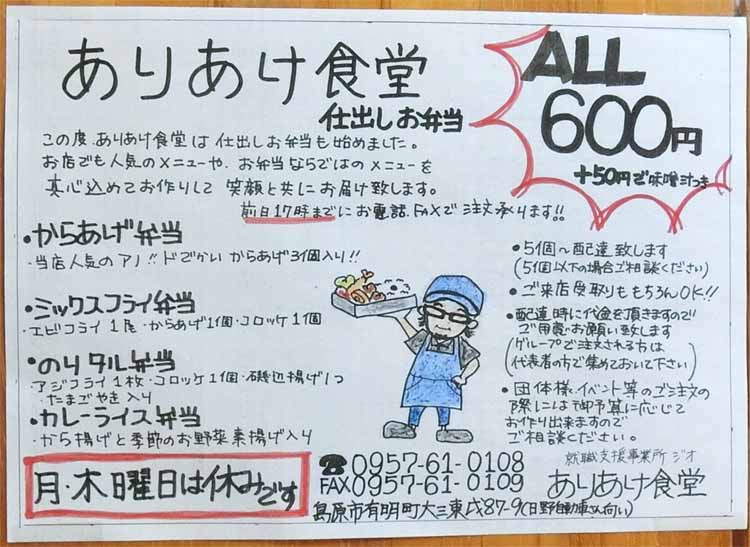 ありあけ食堂
仕出しお弁当
ALL
600円
+50円でご味噌汁つき
この度、ありあけ食堂は仕出しお弁当も始めました。
お店でも人気のメニューや、お弁当ならではのメニューを
真心込めてお作りして笑顔と共にお届け致します。
前日17時までにお電話、FAXでご注文承ります!!
・からあげ弁当
・当店人気のアノ!!ドでかいからあげ3個入り!!
・ミックスフライ弁当
・エビフライ1尾・からあげ1個・コロッケ1個
・のりタル弁当
アジフライ1枚・コロッケ1個・磯辺揚げ1つ
・たまごやき入り
・カレーライス弁当
・から揚げと季節のお野菜素揚げ入り
・5個～配達致します
(5個以下の場合ご相談ください)
・ご来店受取りももちろんOK!!
・配達時に代金を頂きますので
ご用意お願い致します
(グループでご注文される方は
代表者の方で集めておいて下さい)
・団体様、イベント等のご注文の
際には御予算に応じて
お作り出来ますので
ご相談ください。
月・木曜日は休みです
☎0957-61-0108
FAX0957-61-0109
島原市有明町大三東戊87-9(日野自動車さん向い)
就職支援事業所ジオ
ありあけ食堂